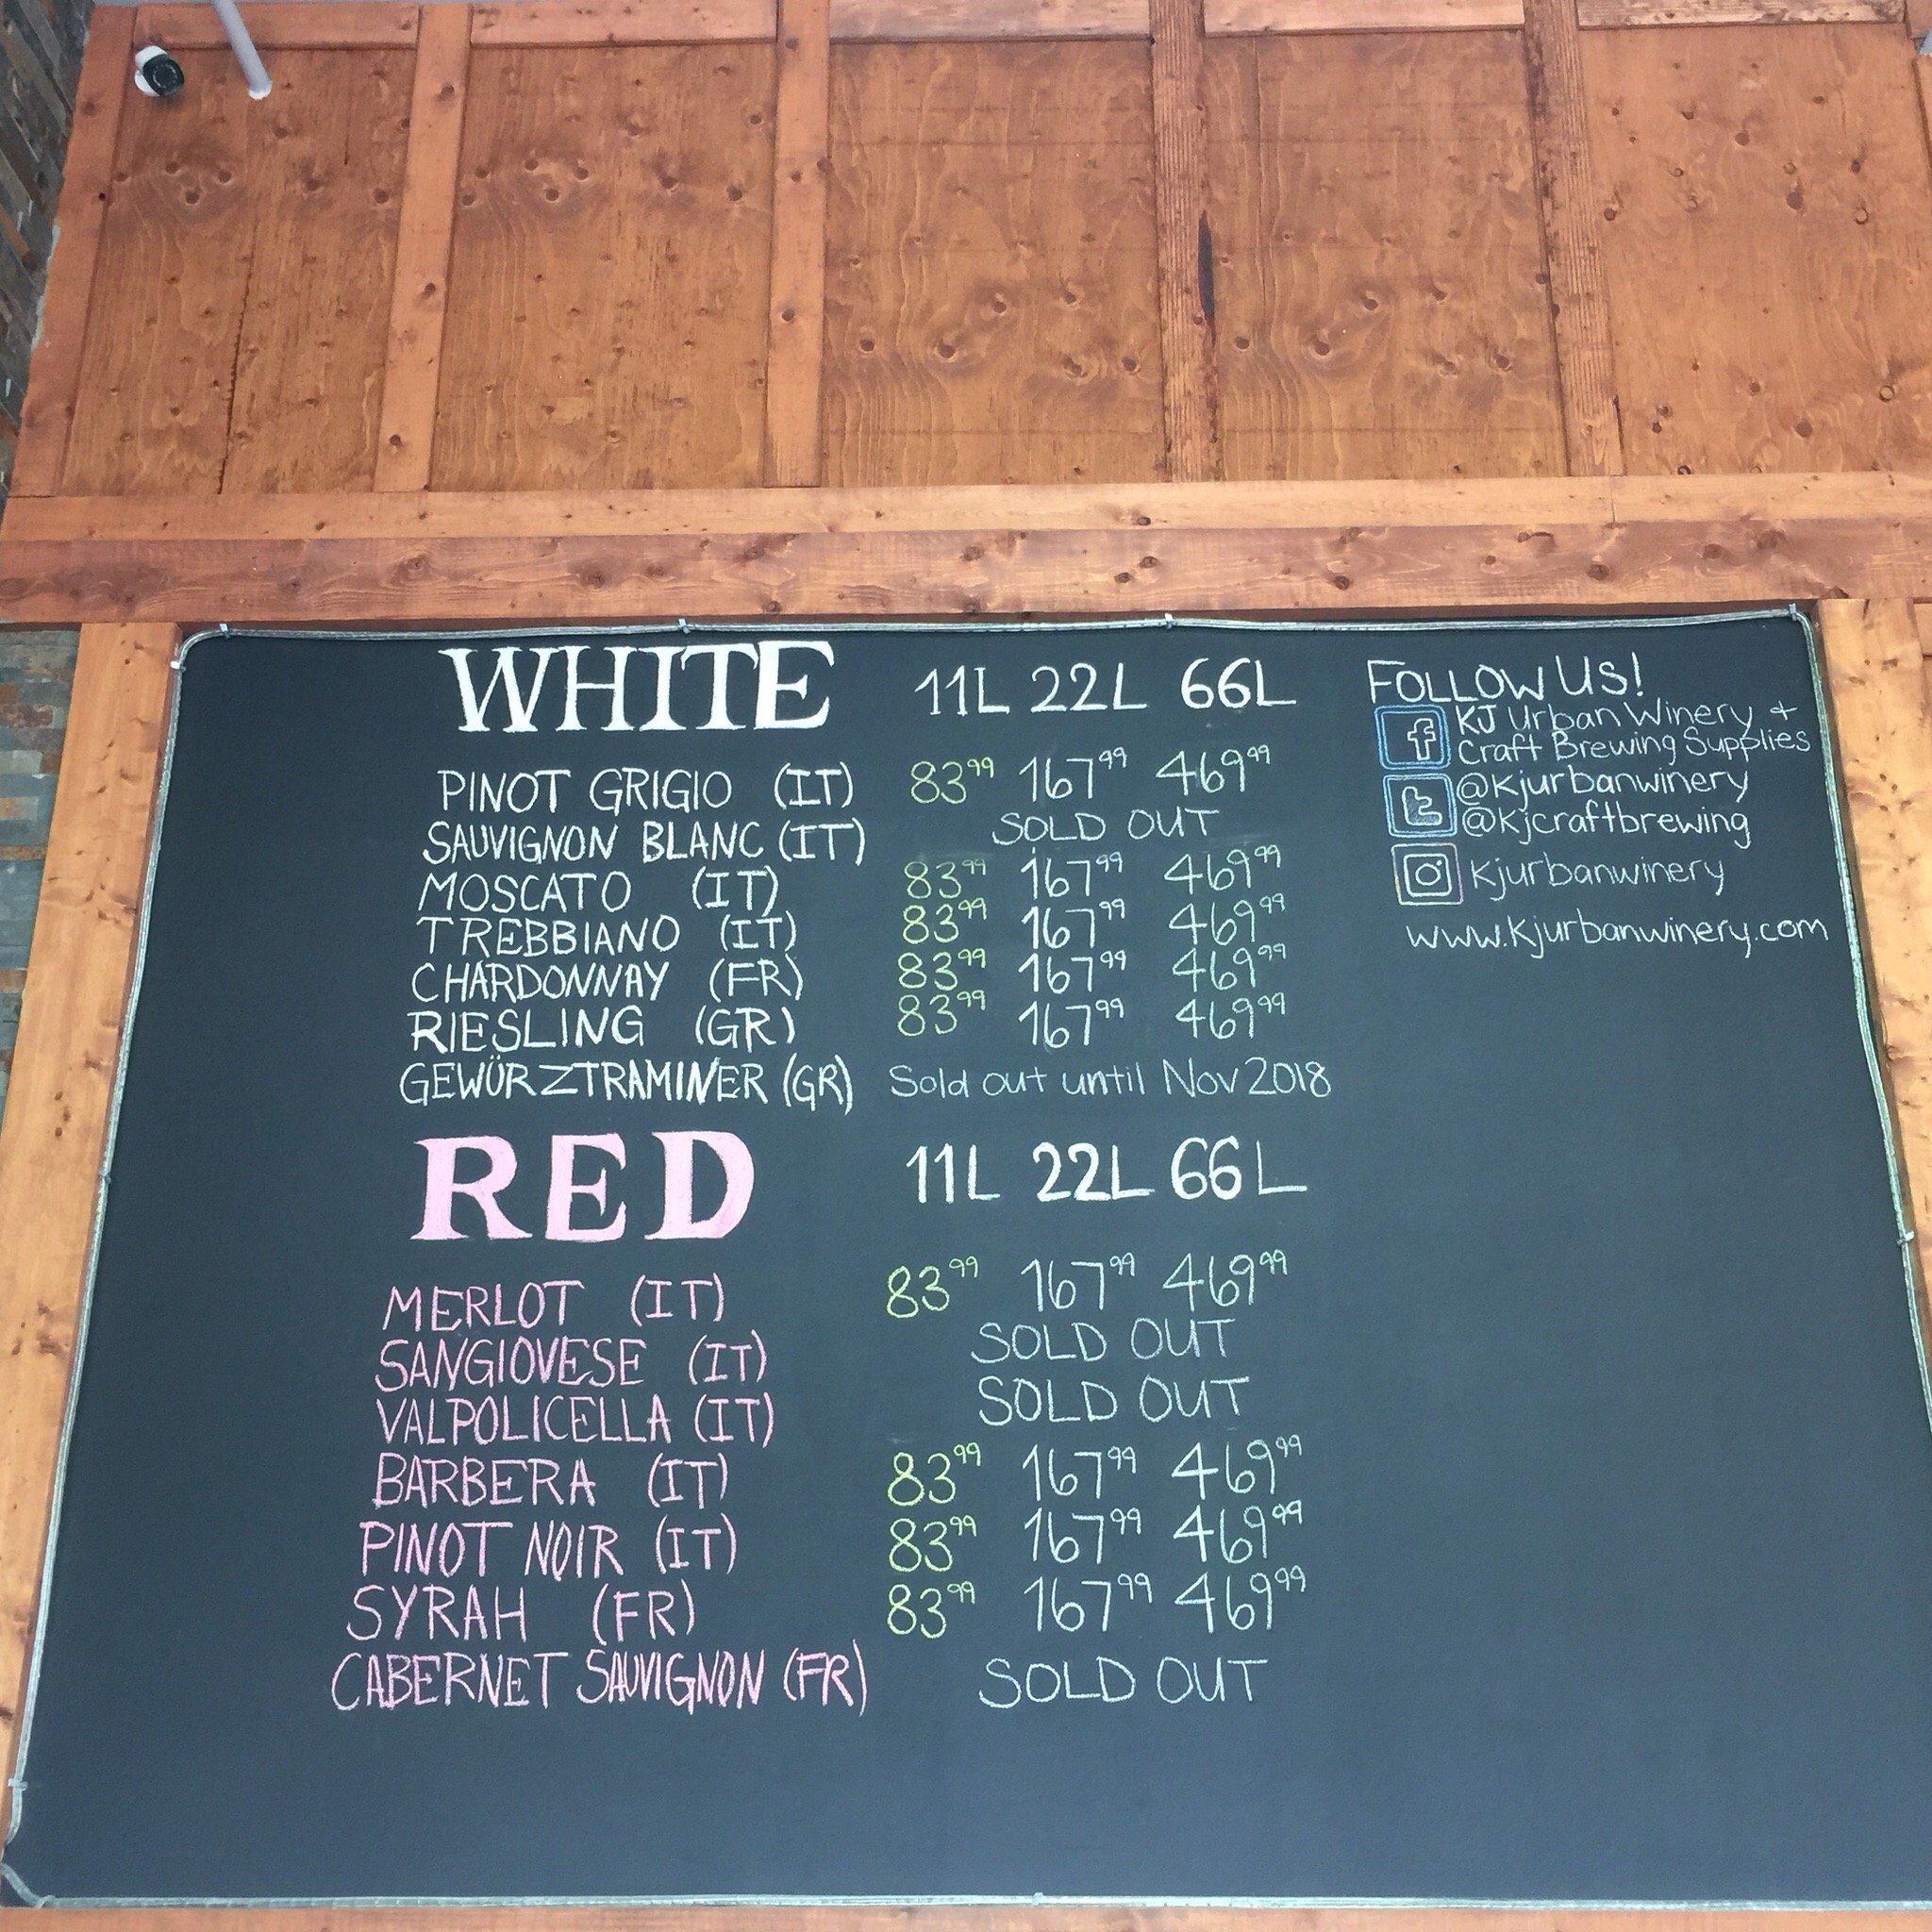 WHITE 11L 22L 66L
PINOT GRIGIO (IT) 83⁹⁹ 167⁹⁹ 469⁹⁹
SAUVIGNON BLANC (IT) SOLD OUT
MOSCATO (IT) 83⁹⁹ 167⁹⁹ 469⁹⁹
TREBBIANO (IT) 83⁹⁹ 167⁹⁹ 469⁹⁹
CHARDONNAY (FR) 83⁹⁹ 167⁹⁹ 469⁹⁹
RIESLING (GR) 83⁹⁹ 167⁹⁹ 469⁹⁹
GEWÜRZTRAMINER (GR) Sold out until Nov 2018
RED 11L 22L 66L
MERLOT (IT) 83⁹⁹ 167⁹⁹ 469⁹⁹
SANGIOVESE (IT) SOLD OUT
VALPOLICELLA (IT) SOLD OUT
BARBERA (IT) 83⁹⁹ 167⁹⁹ 469⁹⁹
PINOT NOIR (IT) 83⁹⁹ 167⁹⁹ 469⁹⁹
SYRAH (FR) 83⁹⁹ 167⁹⁹ 469⁹⁹
CABERNET SAUVIGNON (FR) SOLD OUT
FOLLOW US!
f KJ Urban Winery +
Craft Brewing Supplies
t @Kjurbanwinery
@Kjcraftbrewing
Kjurbanwinery
www.Kjurbanwinery.com